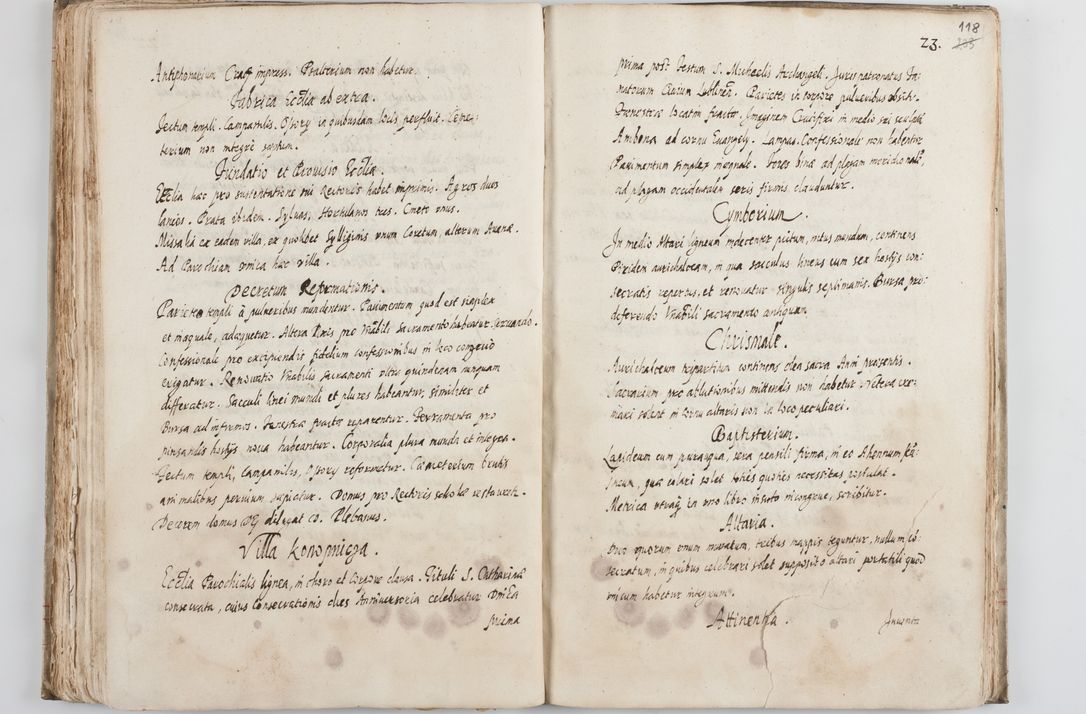 Antiphonarium Crac. impress. Psalterium non habetur.
Fabrica Ecclia ab extra.
Tectum templi. Campanilis. Ossory in quibusdam locis perfluit. Cęme:
terium non integrè septum.
Fundatio et Provisio Ecclia.
Ecclia hac pro sustentatione sui Rectoris habet inprimis. Agros duos
laneos. Prata ibidem. Sylvas, Hortulanos tres. Cmeto vnus.
Missalia ex eadem villa, ex quolibet Sylliginis vnum Coretum, alterum Auenæ.
Ad Parochiam vnica hac villa.
Decretum Reformationis.
Parietes templi à pulueribus mundentur. Pauimentum quod est simplex
et inæquale, adæquetur. Altera Pixis pro Vnabili Sacramento habeatur seruando.
Confessionale pro excipiendis fidelium confessionibus in loco congruo
erigatur. Renouatio Vnabilis Sacramenti vltra quindenam nunquam
differatur. Sacculi linei mundi et plures habeantur, similiter et
Bursa ad infirmos. Fenestræ fractæ reparentur. Ferramenta pro
pinsandis hostijs noua habeantur. Corporalia plura munda et integra.
Tectum templi, campanilis, Ossory reformetur. Cæmeterium brutis
animalibus peruium sepiatur. Domus pro Rectoris scholæ restauretr.
Decorem domus Dei diligat D. Plebanus.
Villa Konopnicza.
Ecclia Parochialis lignea, in choro et Corpore clausa. Tituli S. Catharinæ
consecrata, cuius Consecrationis dies Anniversaria celebratur Dnica
prima
23. 118
prima post festum S. Michaelis Archangeli. Juris patronatus
Ciuium Lublinen. Parietes in corpore pulueribus obsiti.
Fenestræ locatim fractæ. Imaginem Crucifixi in medio sui
Ambona ad cornu Euangely. Lampas, Confessionale non habentur
Pauimentum simplex inæquale. Fores binæ ad plagam meridionalē,
ad plagam occidentalem seris firmis clauduntur.
Cymborium.
In medio Altari ligneum indecenter pictum, intus mundum, continens
Pixidem aurichalceam, in qua sacculus lineus cum sex hostijs con:
secratis repertus, et renouatur singulis septimanis. Bursa pro
deferendo Vnabili sacramento antiqua.
Chrismale.
Aurichalceum tripartitum continens olea sacra Anni præsentis.
Sacrarium pro ablutionibus mittendis non habetur
solent in cornu altaris non in loco peculiari.
Baptisterium.
Lapideum cum pura aqua, sera pensili firma, in eo Ahenum
quæ celari solet toties quoties necessitas postulat.
Metrica in vno libro incongrue, scribitur.
Altaria.
Duo quorum vnum muratum, tribus mappis teguntur, nullum cō:
secratum, in quibus celebrari solet supposito altari portatili quod
vnicum habetur integrum.
Attinentia.
Inuenta